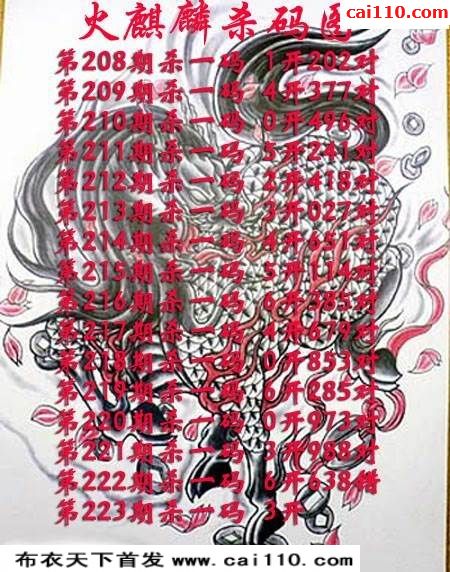 cai110.com
火麒麟杀码
第208期杀一码 1开202对
第209期杀一码 4开377对
第210期杀一码 0开496对
第211期杀一码 5开241对
第212期杀一码 2开418对
第213期杀一码 3开027对
第214期杀一码 4开651对
第215期杀一码 5开114对
第216期杀一码 6开385对
第217期杀一码 4开679对
第218期杀一码 0开853对
第219期杀一码 6开285对
第220期杀一码 0开973对
第221期杀一码 3开988对
第222期杀一码 6开638错
第223期杀一码 3开
布衣天下首发 www.cai110.com